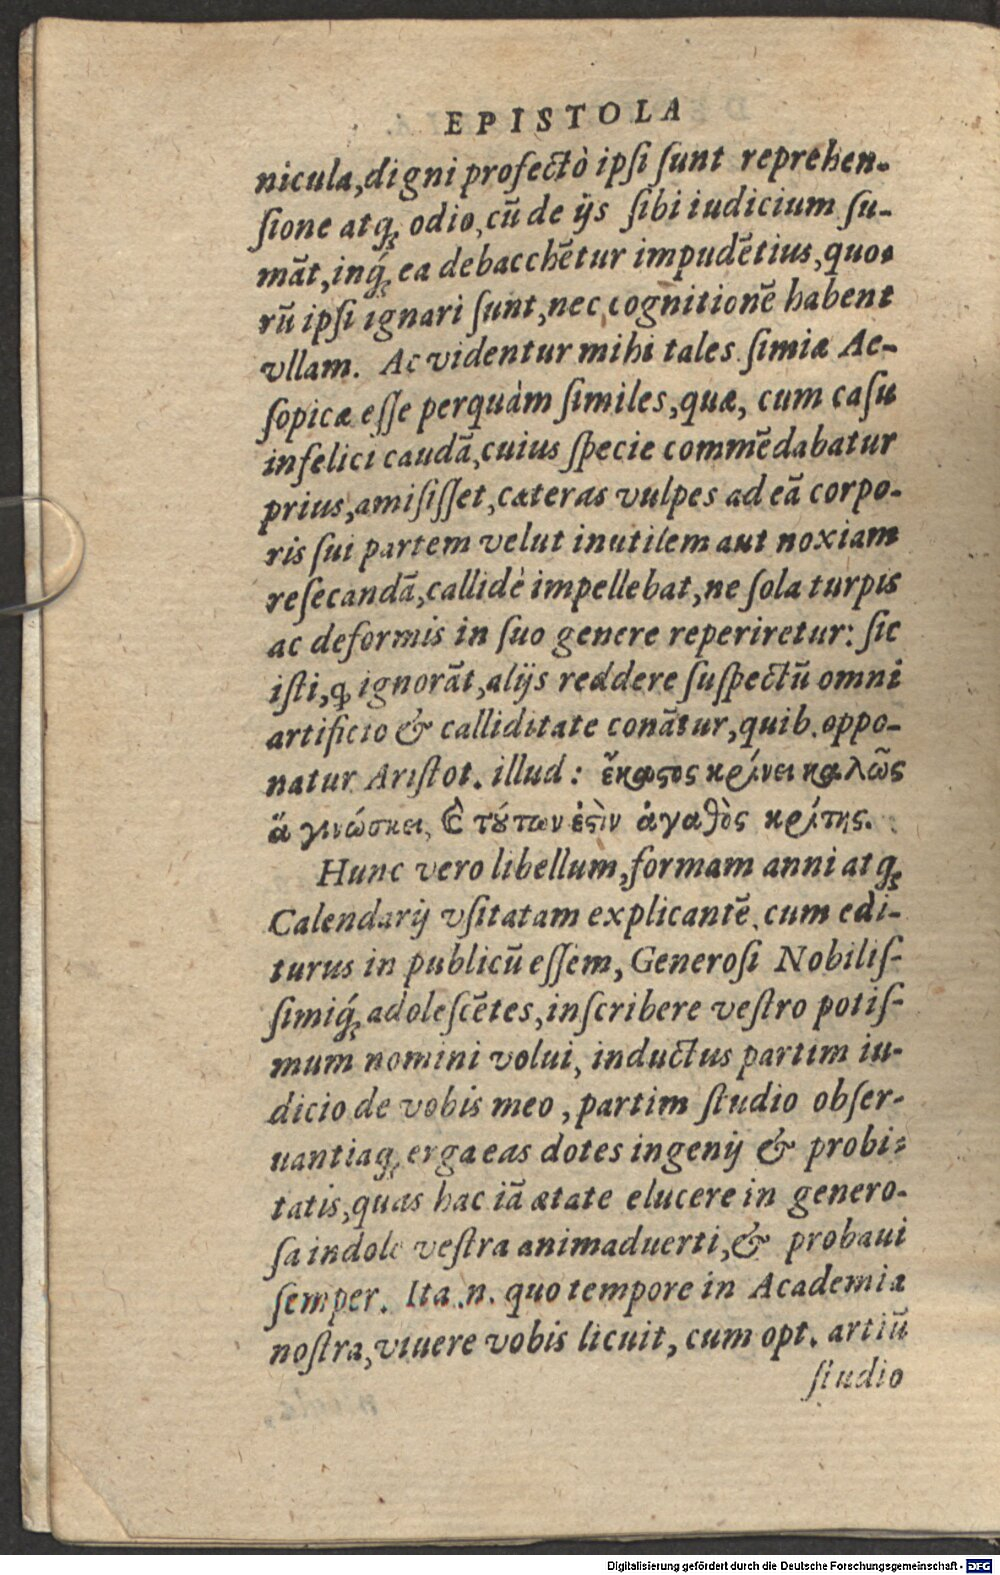 EPISTOLA
nicula, digni profectò ipſi ſunt reprehen-
ſione atq; odio, cū de ijs ſibi iudicium ſu-
māt, inq́; ea debacchētur impudētius, quo-
rū ipſi ignari ſunt, nec cognitionē habent
vllam. Ac videntur mihi tales ſimiæ Ae-
ſopicæ eſſe perquàm ſimiles, quæ, cum caſu
infelici caudā, cuius ſpecie commēdabatur
prius, amiſiſſet, cæteras vulpes ad eā corpo-
ris ſui partem velut inutilem aut noxiam
reſecandā, callidè impellebat, ne ſola turpis
ac deformis in ſuo genere reperiretur: ſic
iſti, ꝙ ignorāt, alijs reddere ſuſpectū omni
artificio & calliditate conātur, quib. oppo-
natur Ariſtot. illud: ἕκαϛος κρίνει καλῶς
ἃ γινώσκει, Ϲ τȣ́των ἐϛὶν ἀγαθὸς κρίτης.
Hunc vero libellum, formam anni atq;
Calendarij vſitatam explicantē, cum edi-
turus in publicū eſſem, Generoſi Nobiliſ-
ſimiq́; adoleſcētes, inſcribere veſtro potiſ-
mum nomini volui, inductus partim iu-
dicio de vobis meo, partim ſtudio obſer-
uantiaq; erga eas dotes ingenij & probi-
tatis, quas hac iā ætate elucere in genero-
ſa indole veſtra animaduerti, & probaui
ſemper. Ita .n. quo tempore in Academia
noſtra, viuere vobis licuit, cum opt. artiū
ſtudio
Digitalisierung gefördert durch die Deutsche Forschungsgemeinschaft - DFG